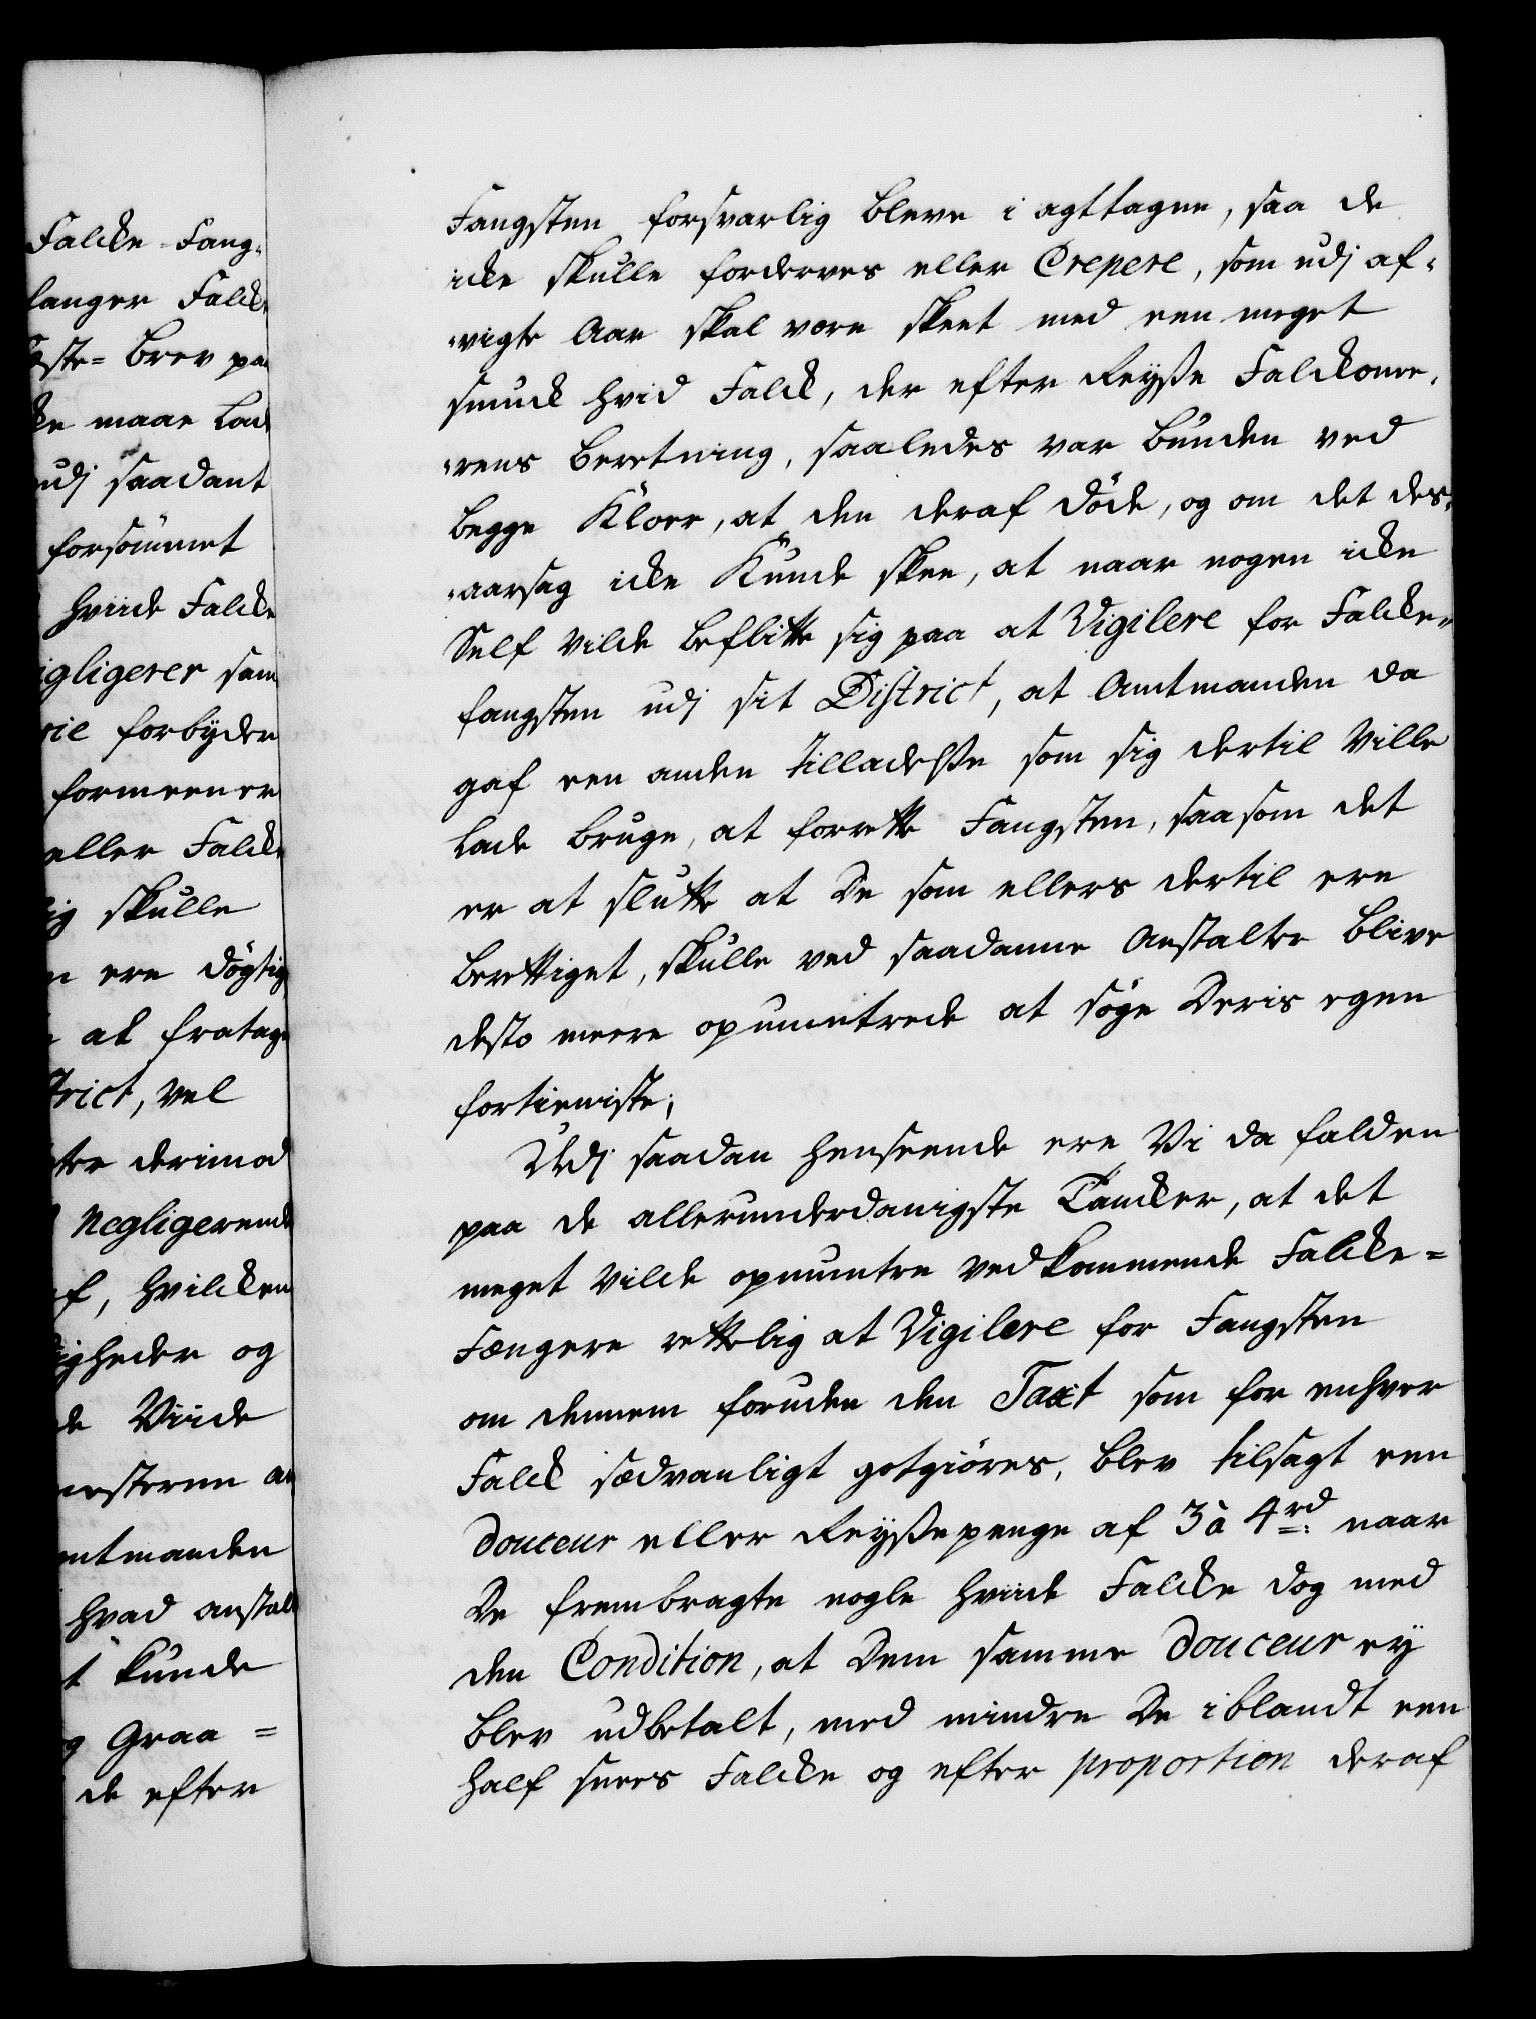 Falcke-Fang-
langer Falcke
ste= brev paa
maae lade
udj saadant
forsömmet
hviide Falcke
igligerer sam
forbÿder
formeener
eller Falcke
skulle
ere dögtig
at fratage
trict, vel
derimod
Negligerende
f, hvilcken
igheder og
de Viide
mesteren an
mtmanden
hvad anstalt
t kunde
g Graa=
de efter
Fangsten forsvarlig bleve i agttagne, saa de
icke skulle forderves eller Crepere, som udj af-
-vigte Aar skal være skeet med een meget
smuck hvid Falck, der efter Reyße Falckone-
-rens beretning, saaledes var bunden ved
begge Klöer, at den deraf döde, og om det des-
-aarsag icke Kunde skee, at naar nogen icke
Self vilde beflitte sig paa at Vigilere for Falcke-
fangsten udj sit District, at Amtmanden da
gaf een anden Tilladelße som sig dertil Ville
lade bruge, at forrette Fangsten, saasom det
er at slutte at De som ellers dertil ere
berettiget, skulle ved saadanne Anstalter blive
desto meere opmuntrede at söge Deris egen
fortieniste;
Udj saadan henseende ere Vi da falden
paa de allerunderdanigste Tancker, at det
meget vilde opmuntre vedkommende Falcke=
Fængere rettelig at Vigilere for Fangsten
om dennem foruden den Taxt som for enhver
Falck sædvanligt godtgiöres, blev tilsagt een
douceur eller Reyßepenge af 3 à 4 rd: naar
De frembragte nogle hviide Falcke dog med
den Condition, at Dem samme douceur ey
blev udbetalt, med mindre De iblandt een
half snees Falcke og efter proportion deraf